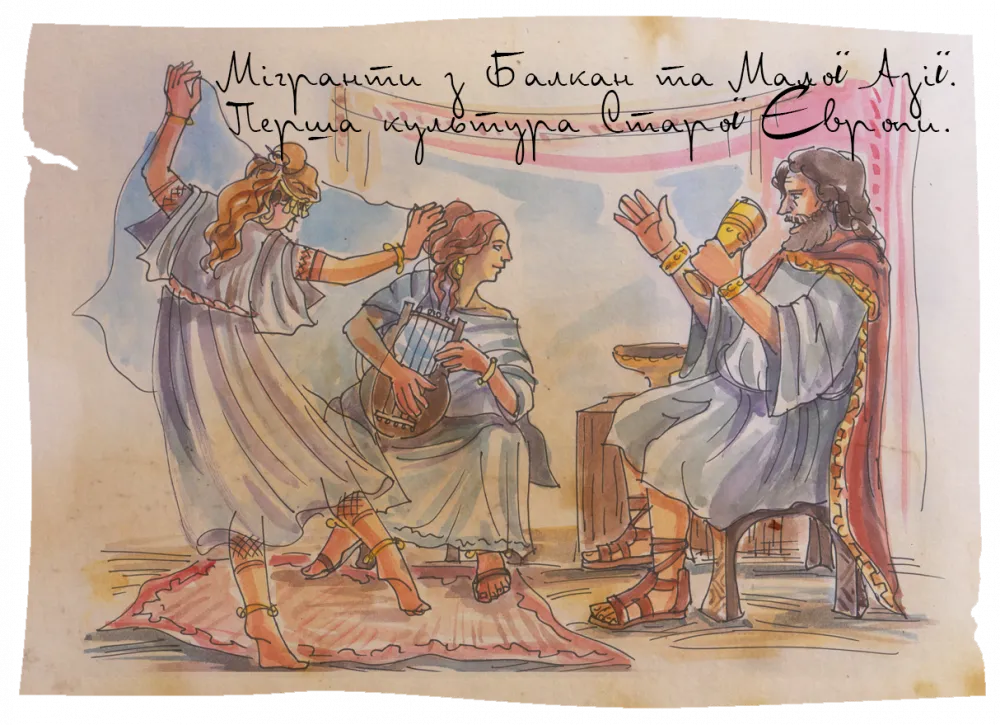 Мігранти з Балкан та Малої Азії.
Перша культура Старої Європи.